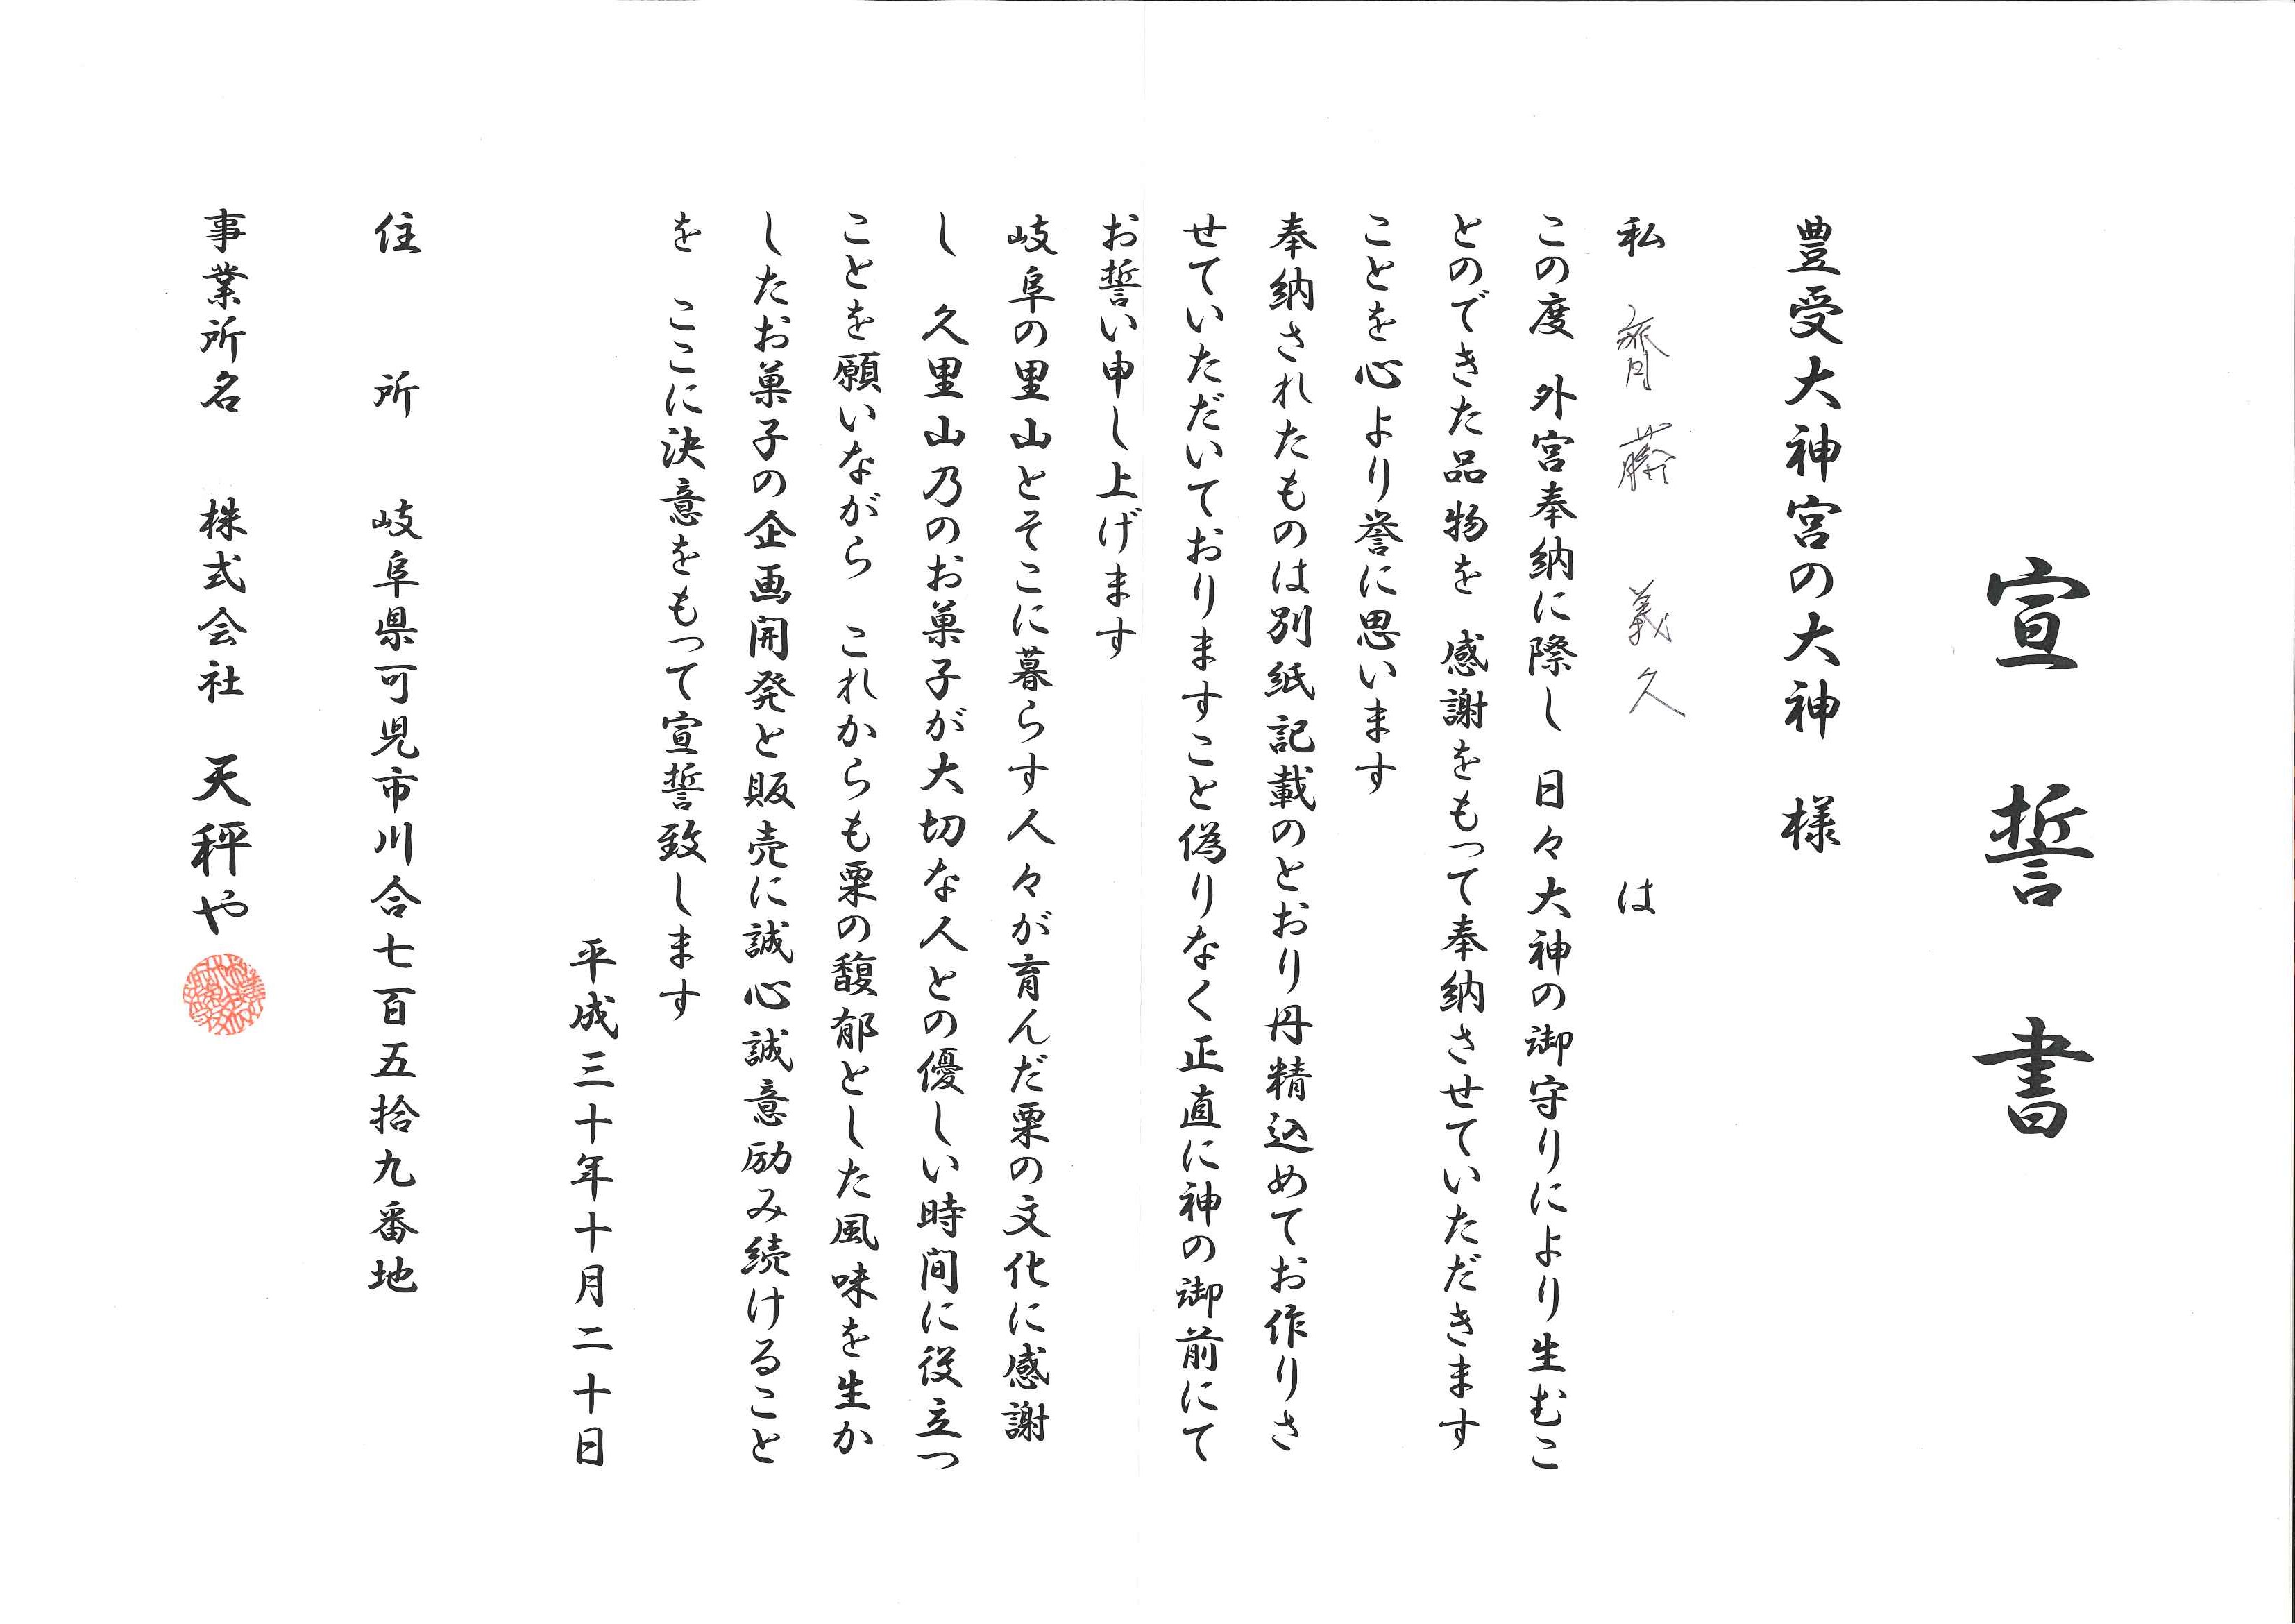 宣誓書
豊受大神宮の大神　様
私　齋藤　義久　は
この度　外宮奉納に際し　日々大神の御守りにより生むこ
とのできた品物を　感謝をもって奉納させていただきます
ことを心より誉に思います
奉納されたものは別紙記載のとおり丹精込めてお作りさ
せていただいておりますこと偽りなく正直に神の御前にて
お誓い申し上げます
岐阜の里山とそこに暮らす人々が育んだ栗の文化に感謝
し　久里山乃のお菓子が大切な人との優しい時間に役立つ
ことを願いながら　これからも栗の馥郁とした風味を生か
したお菓子の企画開発と販売に誠心誠意励み続けること
を　ここに決意をもって宣誓致します
平成三十年十月二十日
住　所　岐阜県可児市川合七百五拾九番地
事業所名　株式会社　天秤や